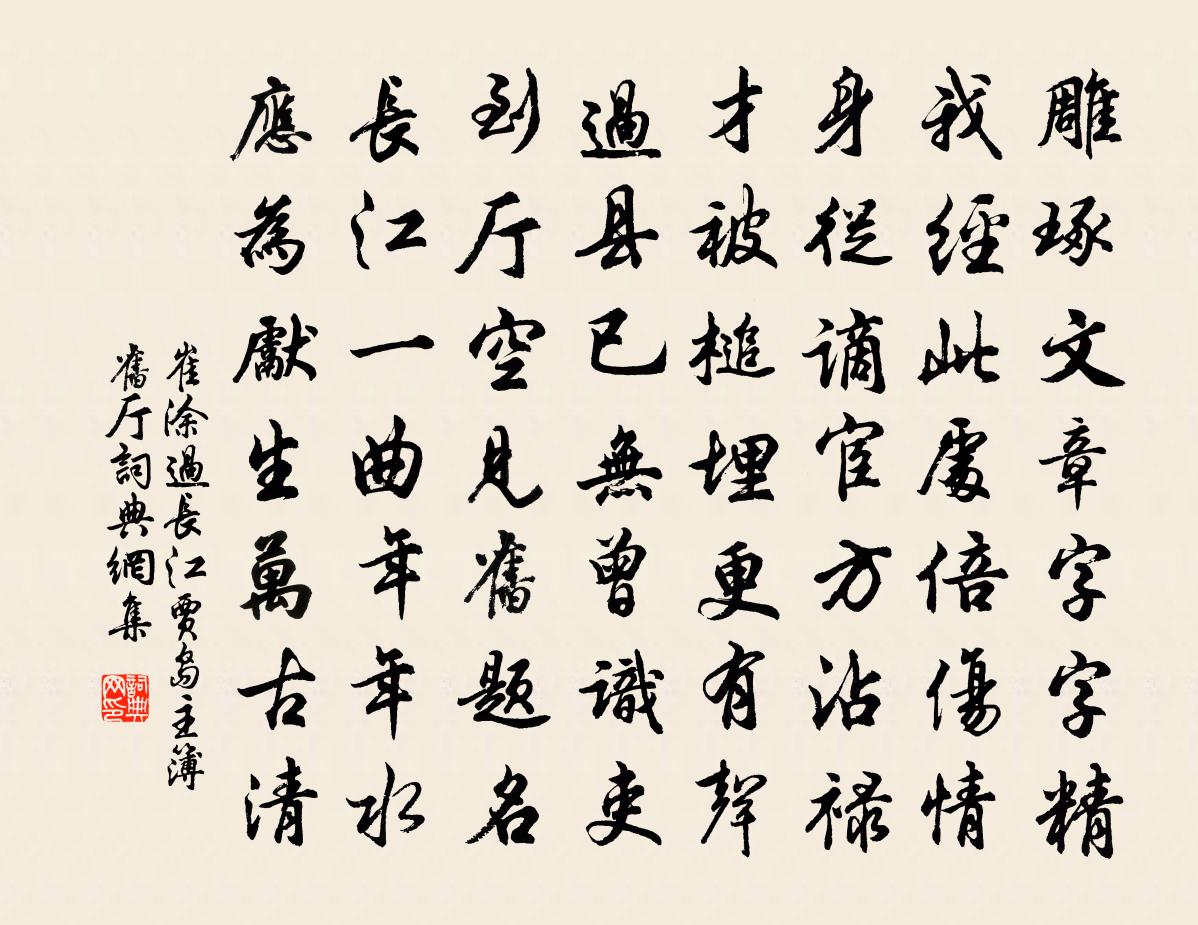 雕琢文章字字精
我經此處倍傷情
身從謫宦方沾禄
才被槌埋更有聲
過县已無曾識吏
到厅空見舊题名
長江一曲年年水
應為獻先生萬古清
崔涂過長江贾島主簿
舊厅詞典網集
詞典网印